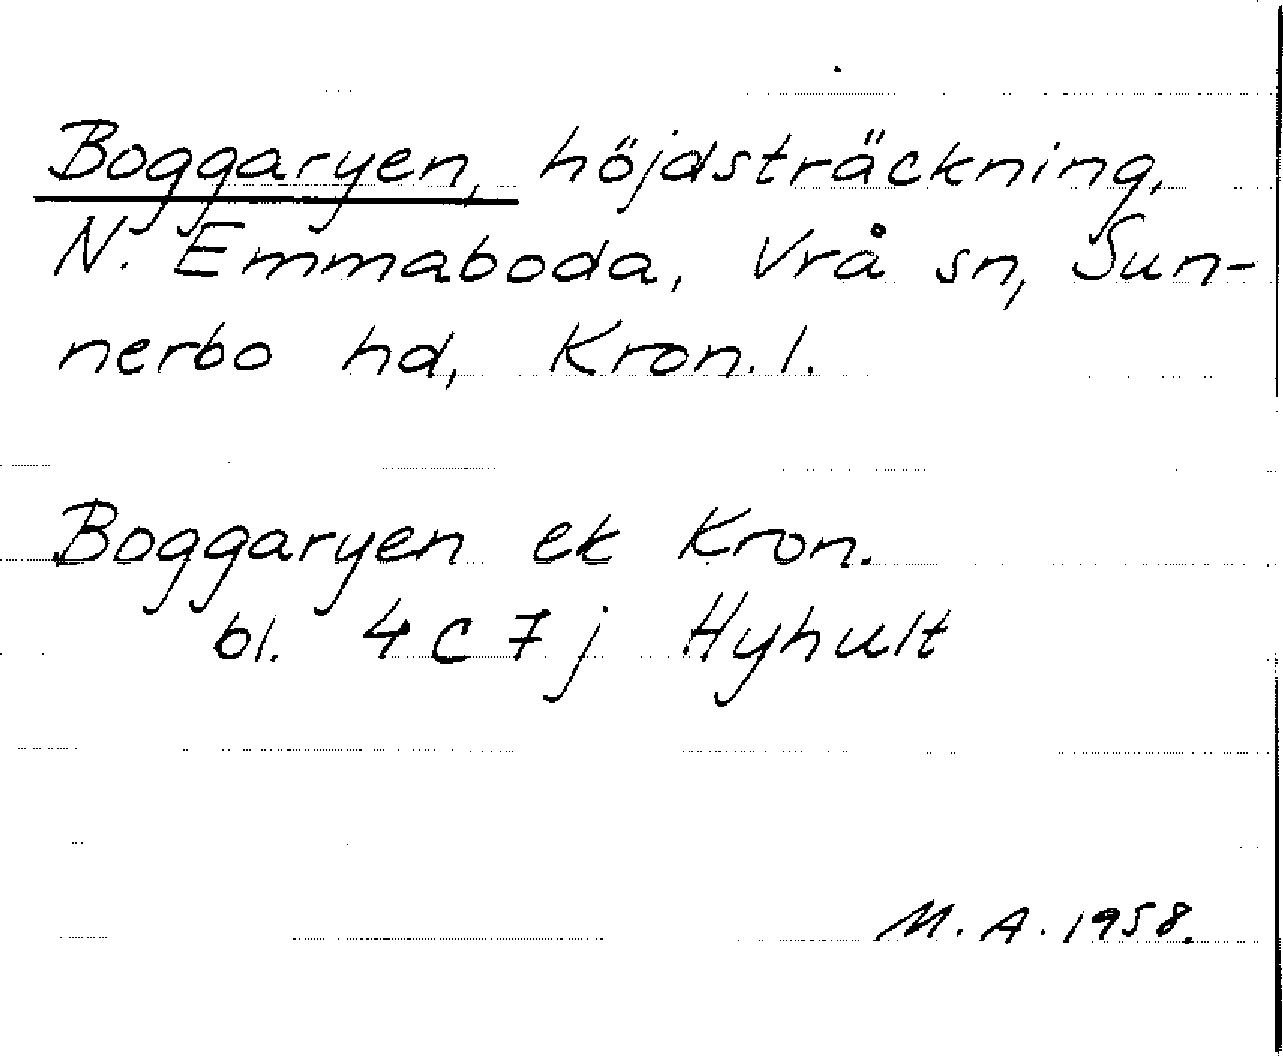 Boggaryen, höjdsträckning,
N. Emmaboda, Vrå sn, Sun-
nerbo hd, Kron. l.
Boggaryen ek Kron.
bl. 4 C 7 j Hyhult
M. A. 1958.